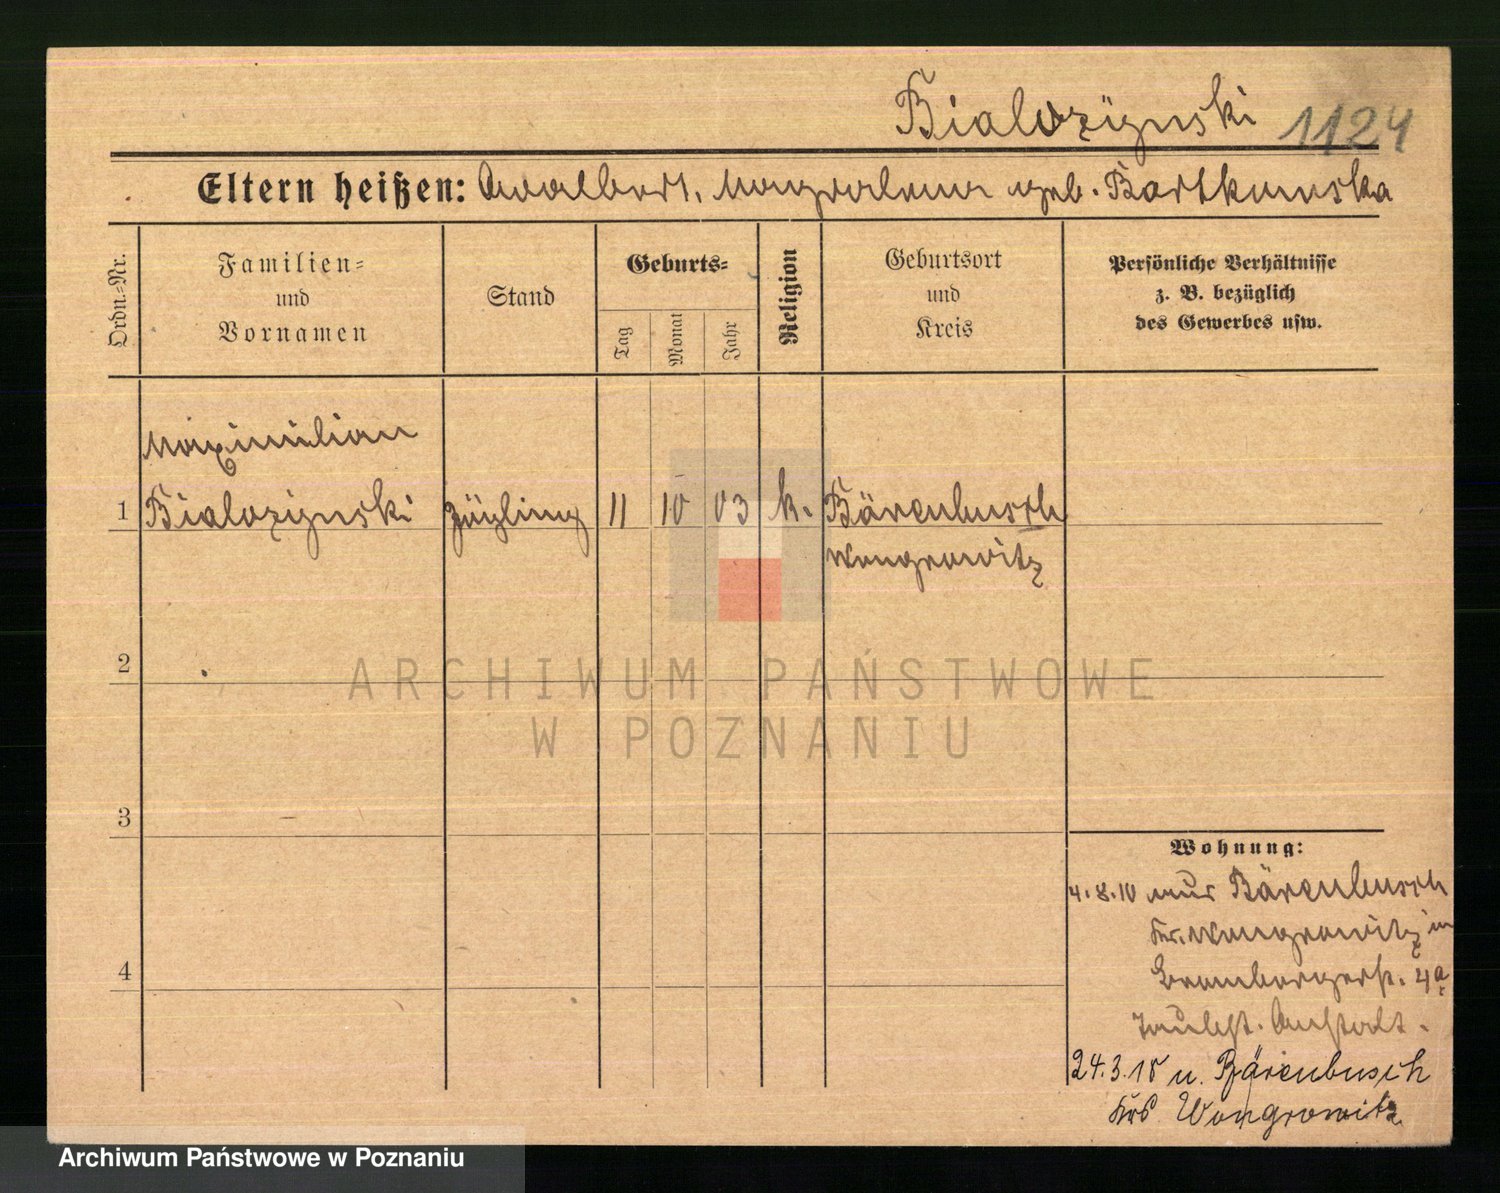 Bialozÿnski 1124
Eltern heißen: Adalbert, Magdalena geb. Bartkowska
Ordn.-Nr.
Familien-
und
Vornamen
Stand
Geburts-
Tag
Monat
Jahr
Religion
Geburtsort
und
Kreis
Persönliche Verhältnisse
z. B. bezüglich
des Gewerbes usw.
Maximilian
1 Bialozynski Zögling 11 10 03 k. Bärenbusch
Wongrowitz
2
ARCHIWUM PAŃSTWOWE
W POZNANIU
3
Wohnung:
4.8.10 aus Bärenbusch
Kr. Wongrowitz in
4
Brombergerstr. 4a
Taubst. Anstalt.
24.3.18 n. Bärenbusch
Krs Wongrowitz
Archiwum Państwowe w Poznaniu